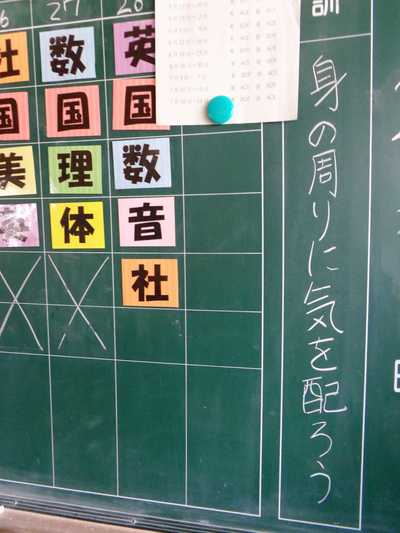 訓
身の周りに気を配ろう
27
数
国
理
体
英
国
数
音
社
社
国
美